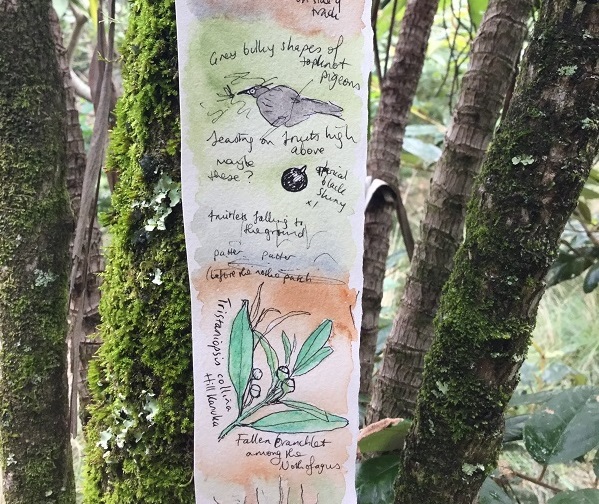 track
Grey bulky shapes of
topknot
pigeons
feasting on fruits high
above
maybe
these?
black
shiny
x1
fruitlets falling to
the ground
patter patter
(before the notho patch
Tristaniopsis collina
Hill Kanuka
Fallen Branchlet
among the
Nothofagus